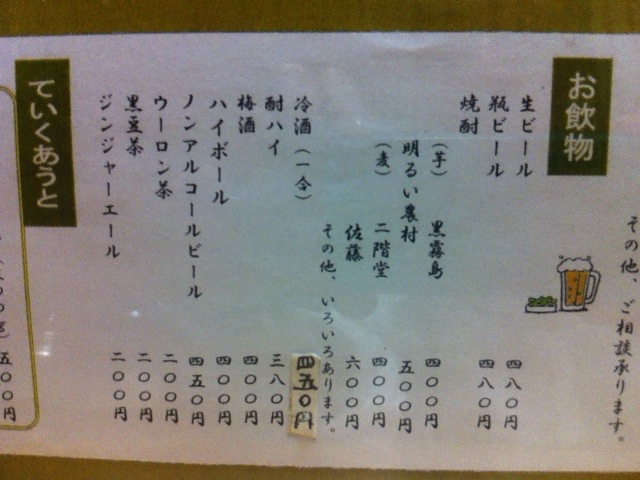 その他、ご相談承ります。
お飲物
生ビール 四八〇円
瓶ビール 四八〇円
焼酎
(芋) 黒霧島 四〇〇円
明るい農村 五〇〇円
(麦) 二階堂 四〇〇円
佐藤 六〇〇円
その他、いろいろあります。
冷酒(一合) 四五〇円
酎ハイ 三八〇円
梅酒 四〇〇円
ハイボール 四〇〇円
ノンアルコールビール 四五〇円
ウーロン茶 二〇〇円
黒豆茶 二〇〇円
ジンジャーエール 二〇〇円
ていくあうと
五〇〇円